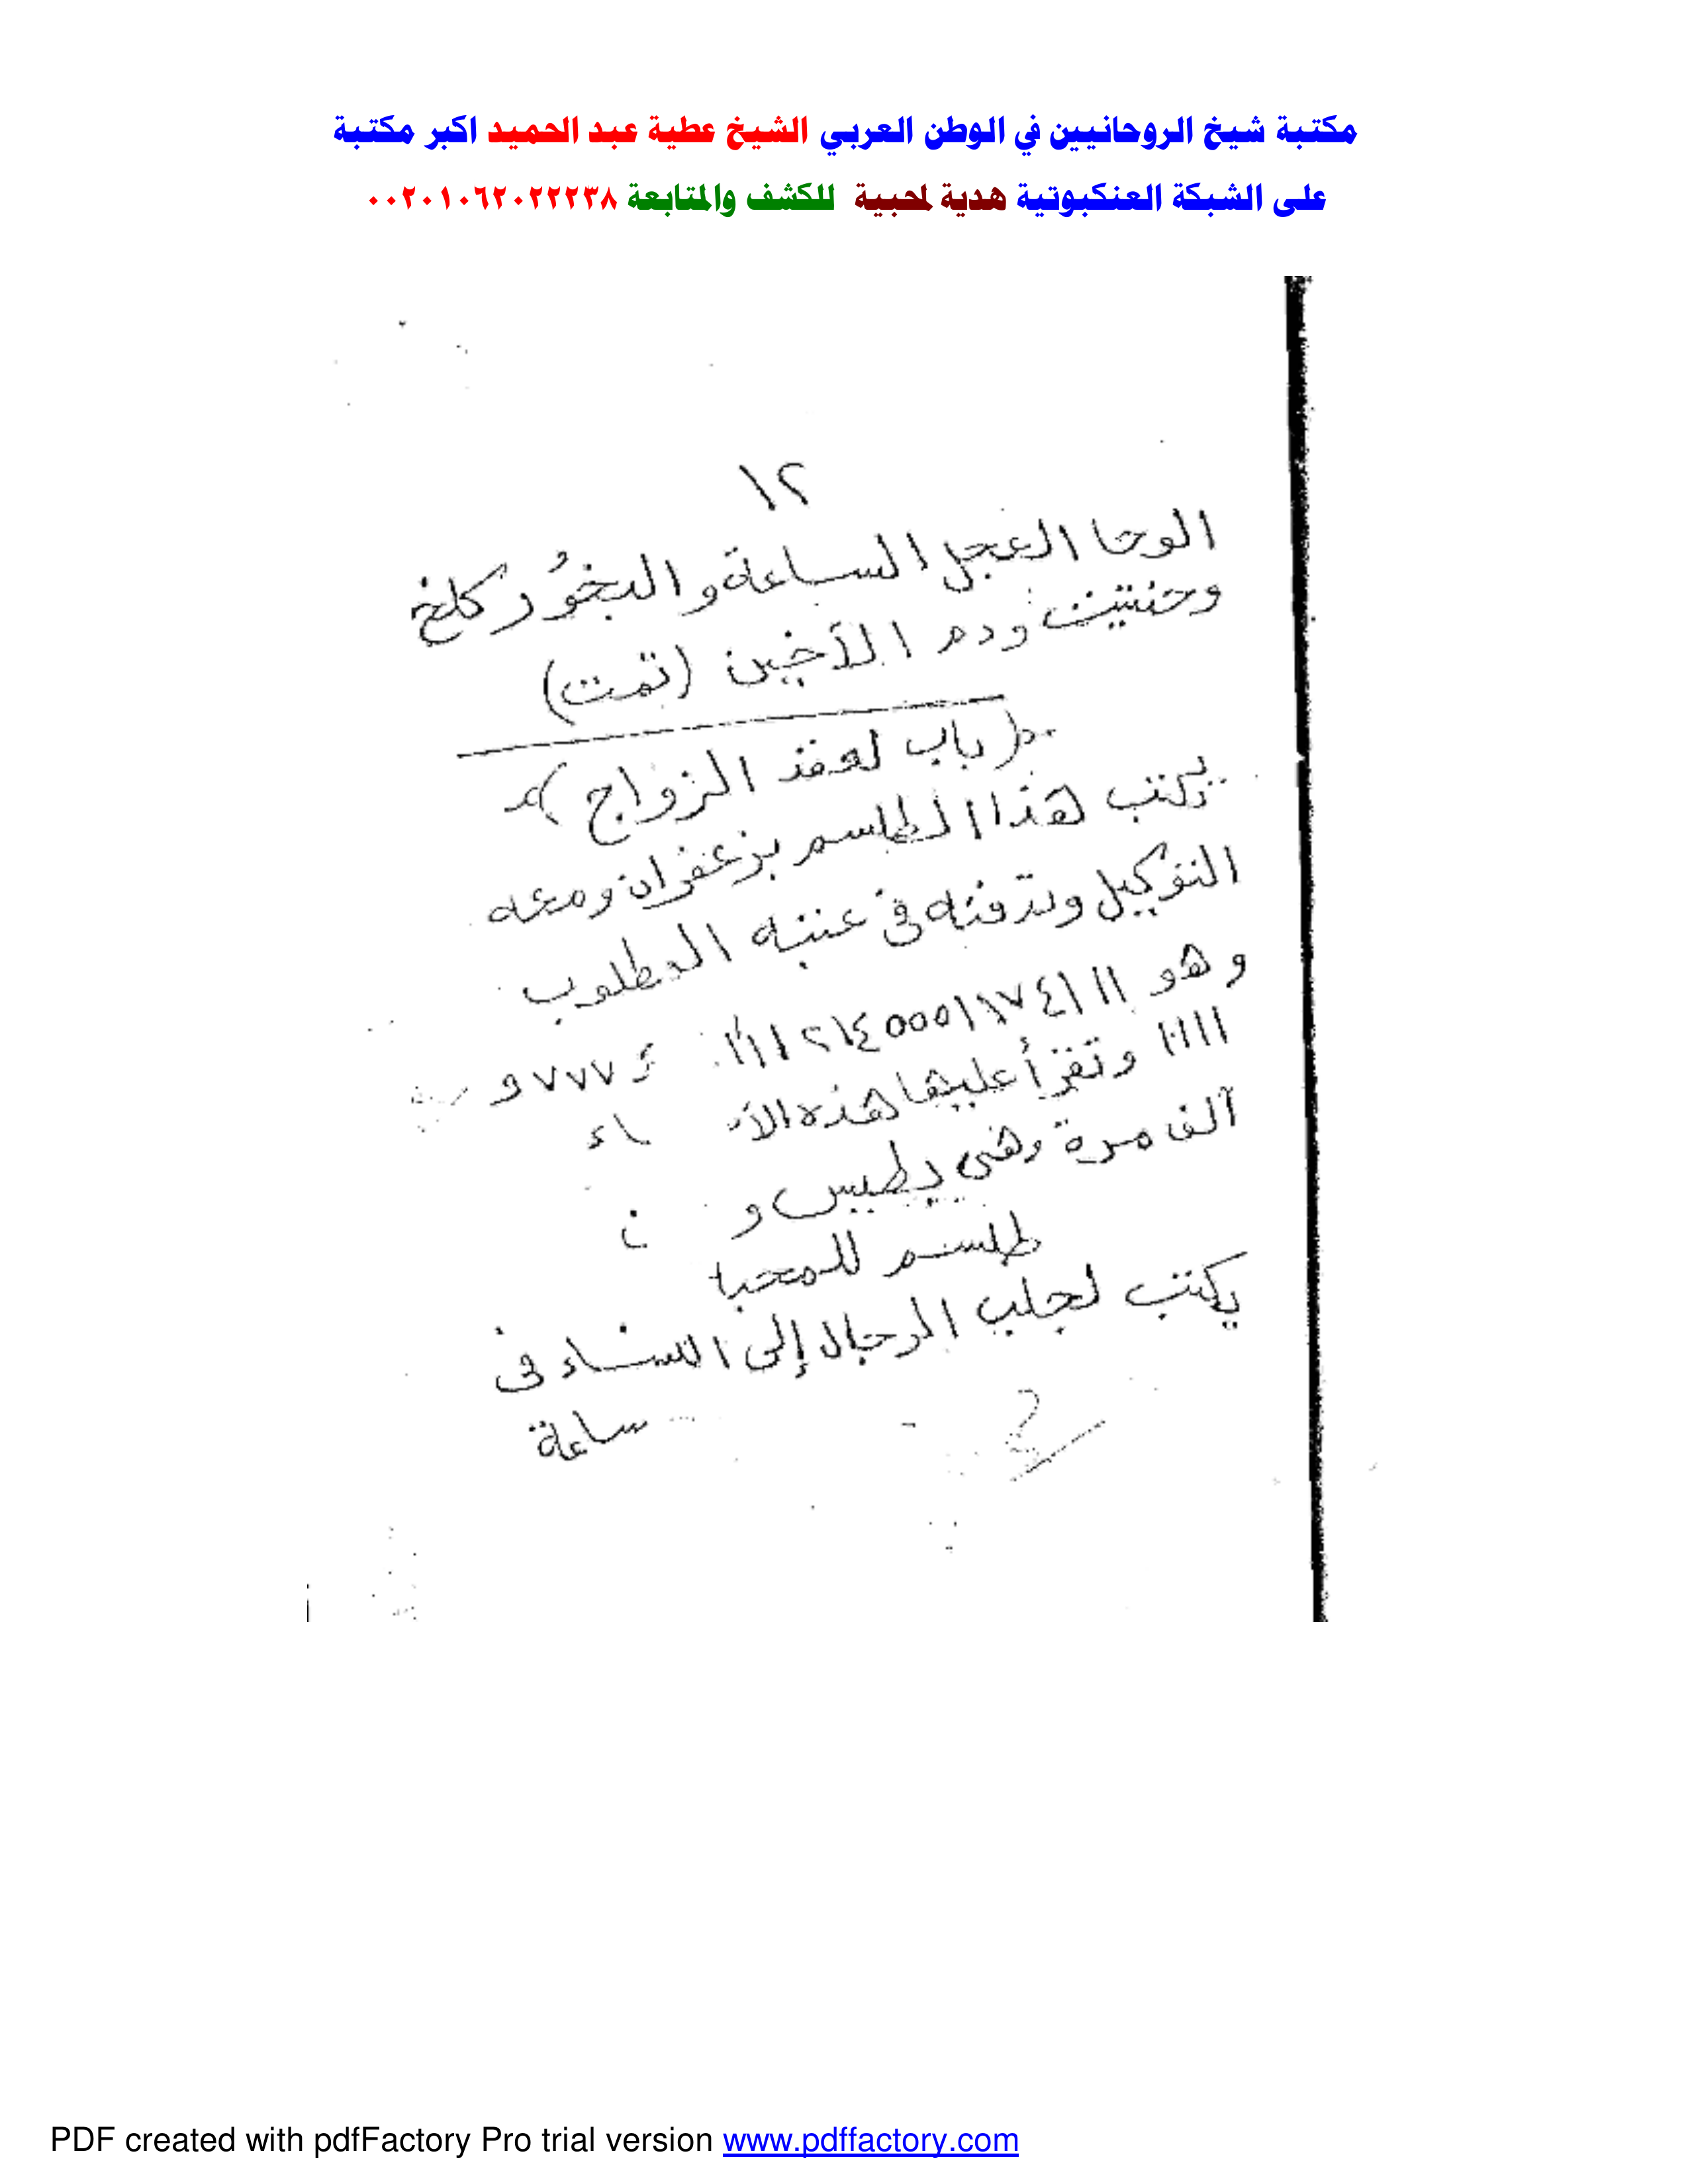 مكتبة شيخ الروحانيين في الوطن العربي الشيخ عطية عبد الحميد اكبر مكتبة
على الشبكة العنكبوتية هدية لمحبية للكشف والمتابعة ٠٠٢٠١٠٦٢٠٢٢٢٣٨
١٢
الوحا العجل الساعة والبخور كلخ
وحنتيت ودم الأخين (تمت)
(باب لعقد الزواج)
يكتب هذا الطلسم بزعفران ومعه
التوكيل وتدفنه في عتبة المطلوب
وهو
وتقرأ عليها هذه
ألف مرة وهي و
طلسم للمحبا
يكتب لجلب الرجال إلى النساء في
ساعة
PDF created with pdfFactory Pro trial version www.pdffactory.com